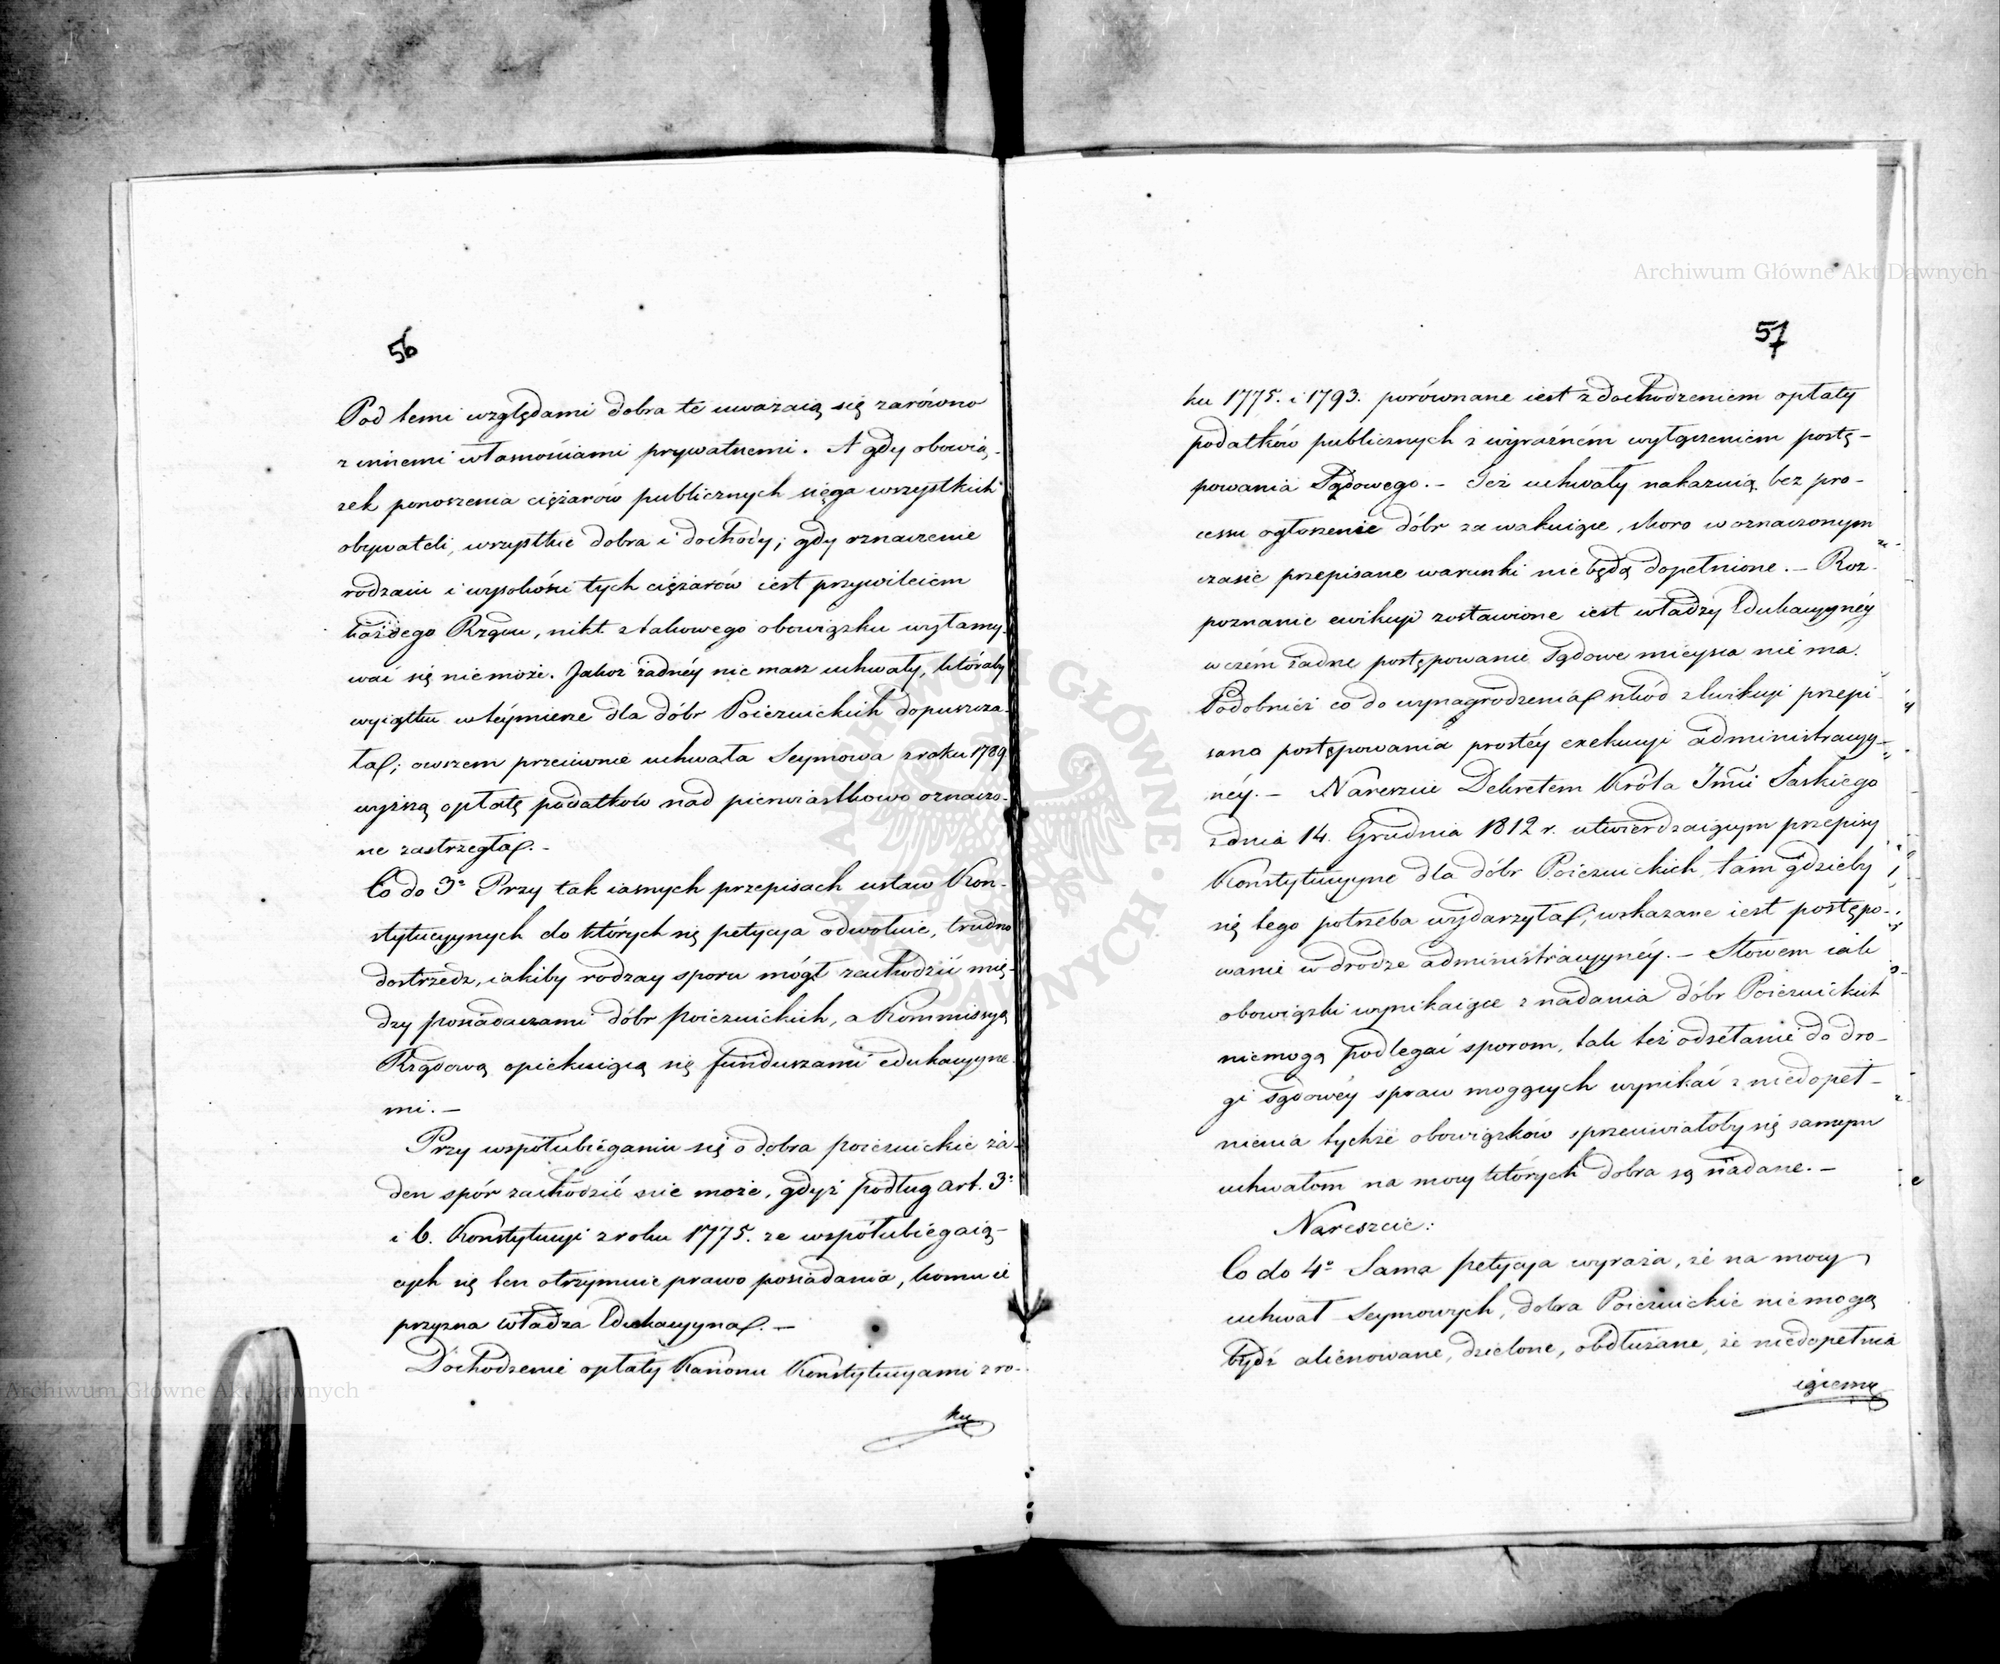 56
Pod temi względami dobra te uważaią się zarówno
z innemi własnościami prywatnemi. A gdy obowią-
zek ponoszenia ciężarów publicznych sięga wszystkich
obywateli, wszystkie dobra i dochody; gdy oznaczenie
rodzaiu i wysokości tych ciężarów iest przywileiem
każdego Rządu, nikt z takowego obowiązku wyłamy-
wać się niemoże. Jakoż żadnéy nie masz uchwały, któraby
wyiątku w téymierze dla dóbr Poiezuickich dopuszcza-
ła; owszem przeciwnie uchwała Seymowa z roku 1789
wyższą opłatę podatków nad pierwiastkowo oznaczo-
ne zastrzegła. -
Co do 3º Przy tak iasnych przepisach ustaw Kon-
stytucyynych do których się petycya odwołuie, trudno
dostrzedz, iakiby rodzay sporu mógł zachodzić mię-
dzy posiadaczami dóbr poiezuickich, a Kommissyą
Rządową opiekuiącą się funduszami edukacyyne-
mi. -
Przy współubieganiu się o dobra poiezuickie ża-
den spór zachodzić nie może, gdyż podług art. 3º
i 6. Konstytucyi z roku 1775. ze współubiegaią-
cych się ten otrzymuie prawo posiadania, komu ie
przyzna władza Edukacyyna. -
Dochodzenie opłaty Kanonu Konstytucyami z ro-
ku
57
ku 1775. i 1793. porównane iest z dochodzeniem opłaty
podatków publicznych z wyraźném wyłączeniem postę-
powania Sądowego. - Też uchwały nakazuią bez pro-
cessu ogłoszenie dóbr za wakuiące, skoro w oznaczonym
czasie przepisane warunki nie będą dopełnione. - Roz-
poznanie ewikcyi zostawione iest władzy Edukacyynéy
w czém żadne postępowanie Sądowe mieysca nie ma.
Podobnież co do wynagrodzenia szkód z Ewikcyi przepi-
sano postępowania prostéy exekucyi administracyy-
néy. - Nareszcie Dekretem Króla Jmci Saskiego
z dnia 14. Grudnia 1812 r. utwierdzaiącym przepisy
Konstytucyyne dla dóbr Poiezuickich, tam gdzieby
się tego potrzeba wydarzyła, wskazane iest postępo-
wanie w drodze administracyynéy. - Słowem iak
obowiązki wynikaiące z nadania dóbr Poiezuickich
niemogą podlegać sporom, tak też odsełanie do dro-
gi sądowéy spraw mogących wynikać z niedopeł-
nienia tychże obowiązków sprzeciwiałoby się samym
uchwałom na mocy których dobra są nadane. -
Nareszcie:
Co do 4º Sama petycya wyraża, że na mocy
uchwał Seymowych, dobra Poiezuickie niemogą
bydź alienowane, dzielone, obdłużane, że niedopełnia
iącemu
Archiwum Główne Akt Dawnych
Archiwum Główne Akt Dawnych